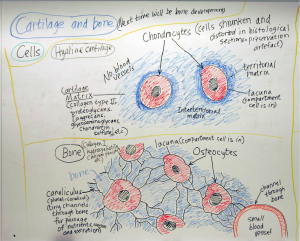 Cartilage and bone (Next time will be bone development)
Cells Hyaline cartilage
Chondrocytes (cells shrunken and
distorted in histological
sections - preservation
artefact)
No blood
vessels
territorial
matrix
Cartilage
Matrix
(collagen type II,
proteoglycans,
glycosaminoglycans,
chondroitin
lacuna
(compartment
cell is in)
Interterritorial
matrix
Bone
lacuna (compartment cell is in)
Osteocytes
bone
canaliculus
(plural: canaliculi)
tiny channels
through bone
for passage
of nutrients,
channel
through
bone
small
blood
vessel